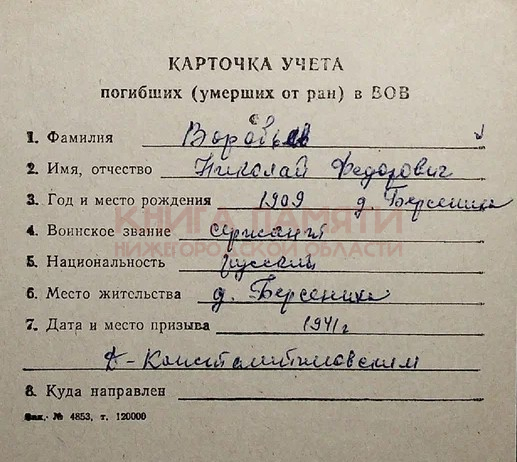 КАРТОЧКА УЧЕТА
погибших (умерших от ран) в ВОВ
1. Фамилия Воробьев
2. Имя, отчество Николай Федорович
3. Год и место рождения 1909 д. Берсениха
КНИГА ПАМЯТИ
4. Воинское звание сержант
НИЖЕГОРОДСКОЙ ОБЛАСТИ
5. Национальность русский
6. Место жительства д. Берсениха
7. Дата и место призыва 1941г
Д-Константиновским
8. Куда направлен
Зак. № 4853, т. 120000